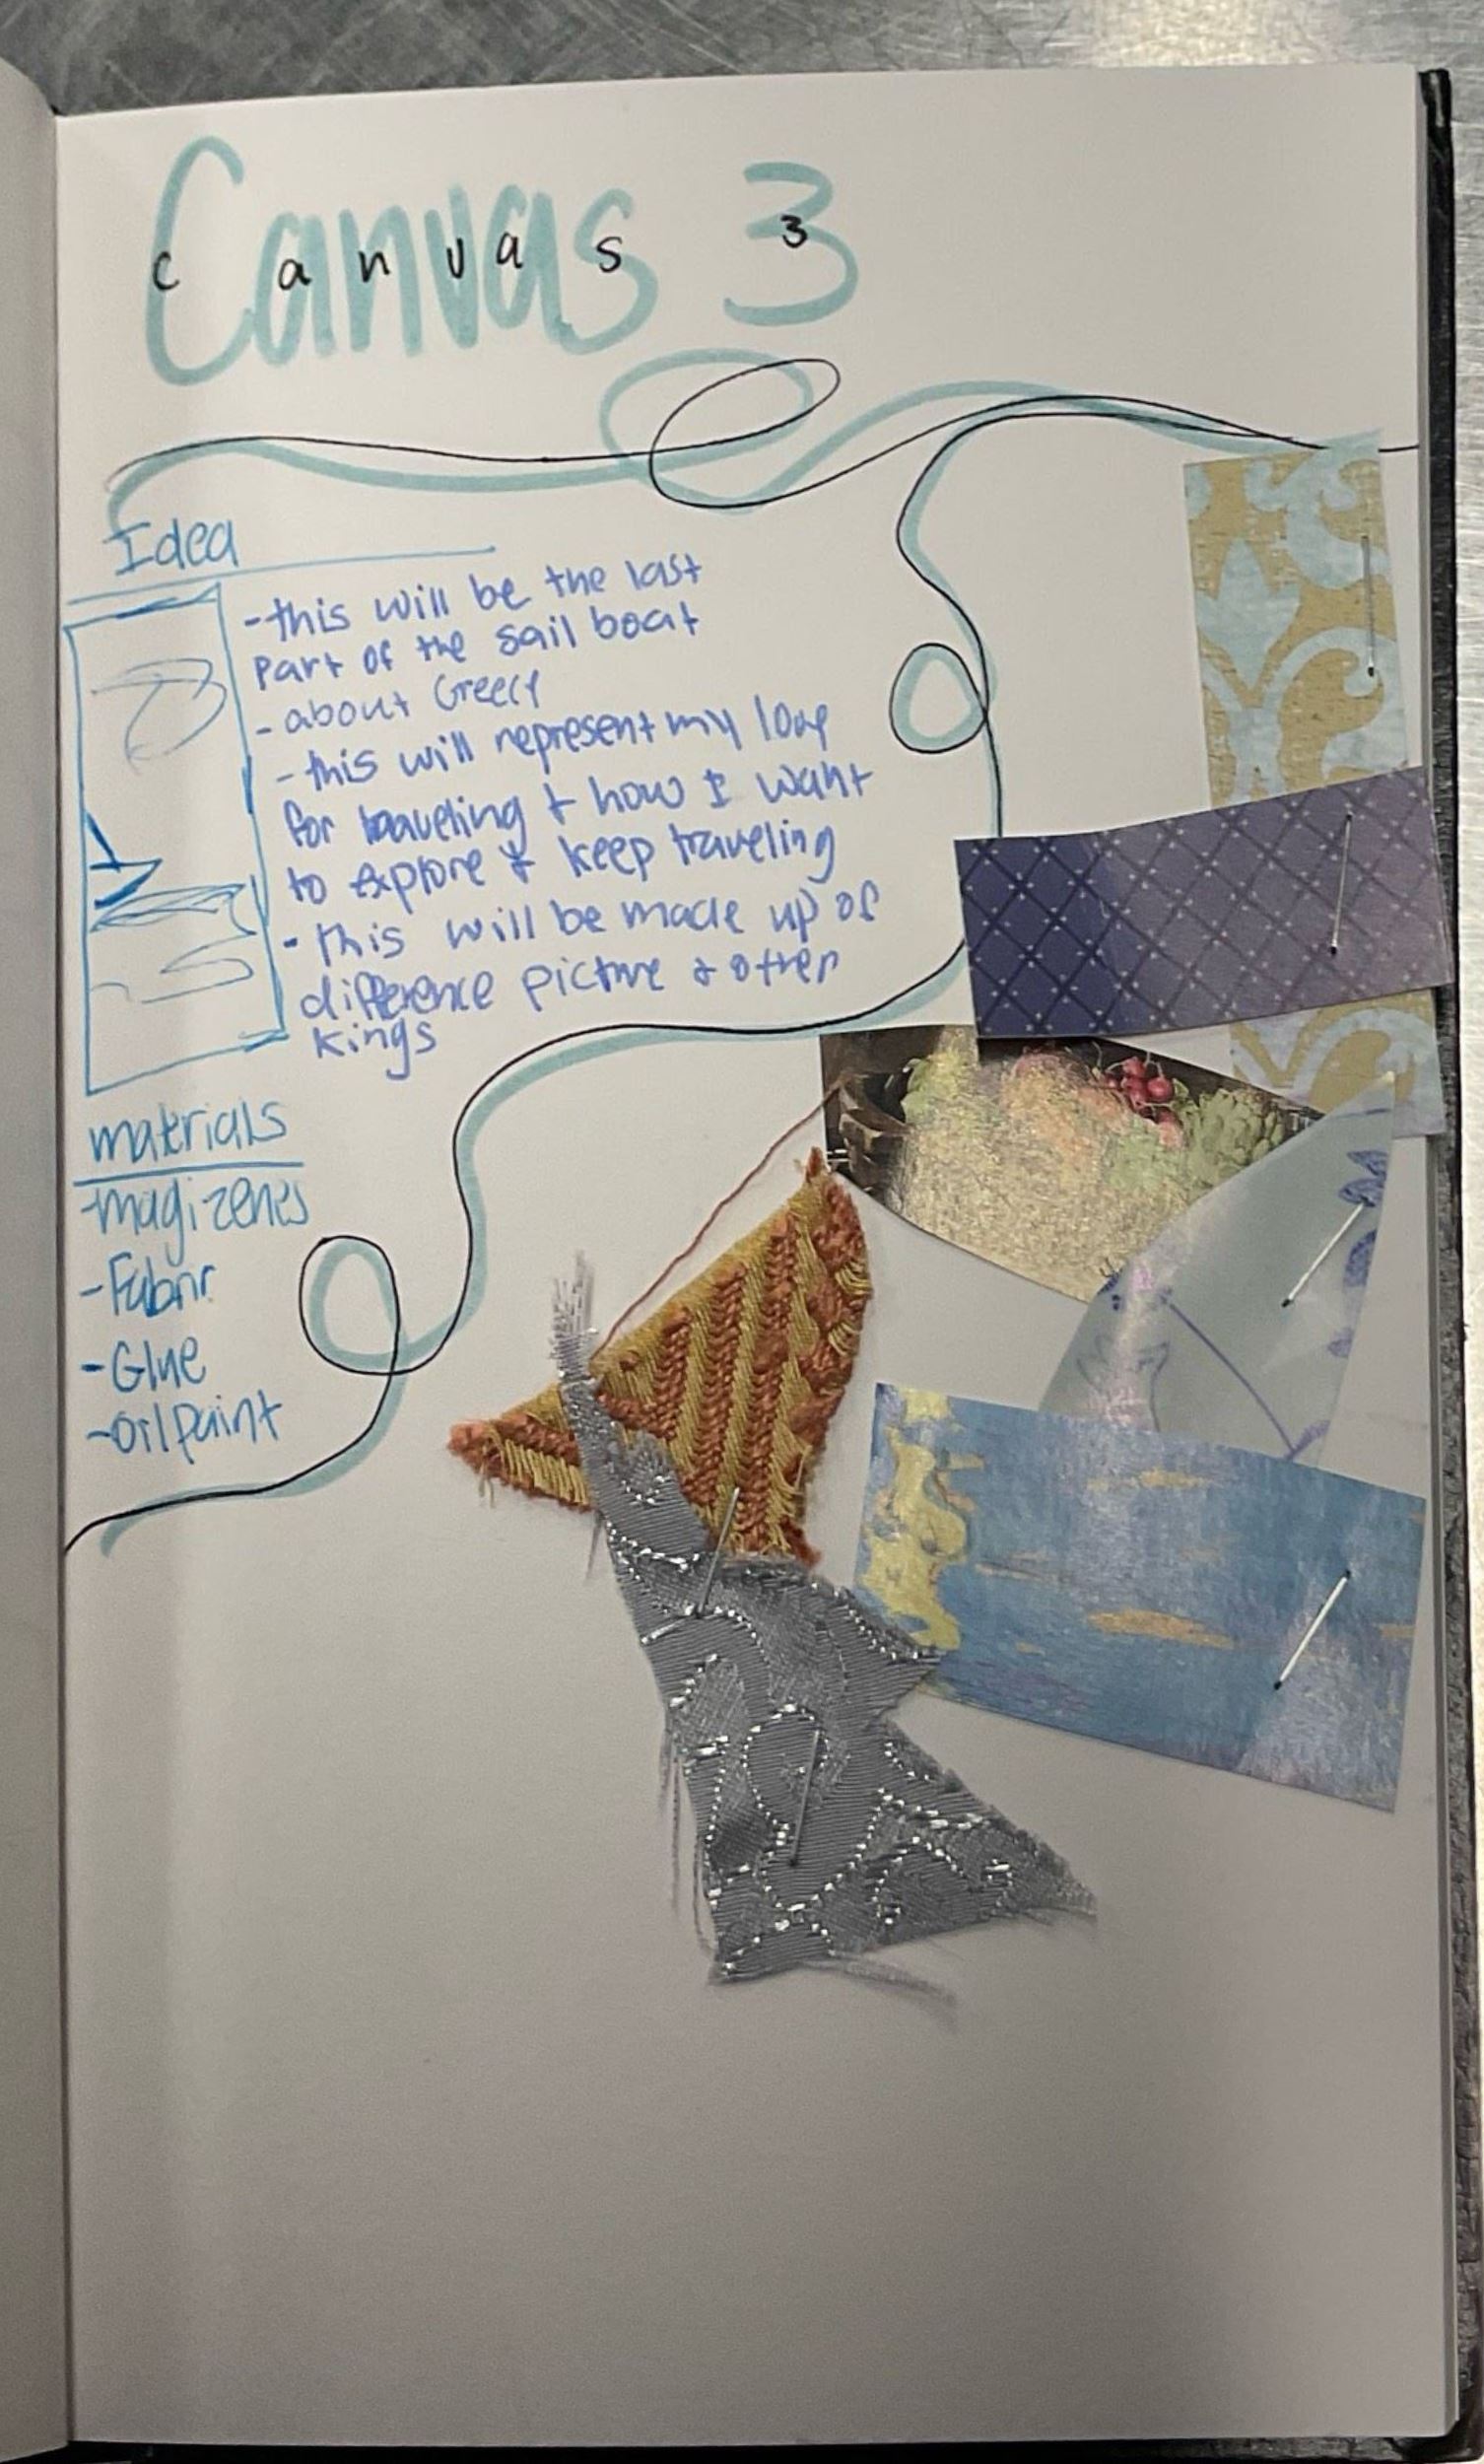 Canvas 3
c a n v a s 3
Idea
- this will be the last
part of the sail boat
- about Greece
- this will represent my love
for traveling + how I want
to explore & keep traveling
- this will be made up of
difference picture & other
kings
materials
-magizenes
-Fabric
-Glue
-oil paint